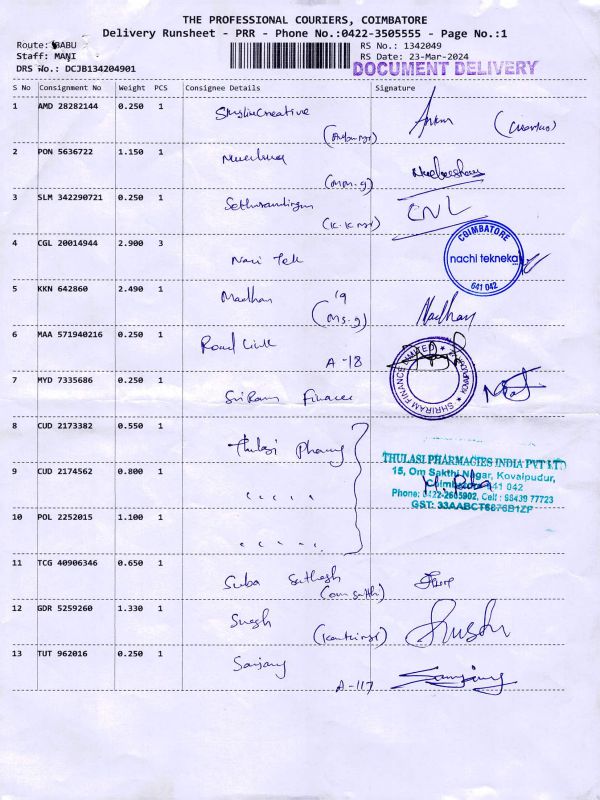 THE PROFESSIONAL COURIERS, COIMBATORE
Delivery Runsheet - PRR - Phone No.:0422-3505555 - Page No.:1
Route: BABU
RS No.: 1342049
Staff: MANI
RS Date: 23-Mar-2024
DRS No.: DCJB134204901
DOCUMENT DELIVERY
S No Consignment No Weight PCS Consignee Details Signature
1 AMD 28282144 0.250 1
2 PON 5636722 1.150 1
(mm.g)
3 SLM 342290721 0.250 1
(K.K ngr) CNL
4 CGL 20014944 2.900 3 Naci Tek
COIMBATORE
nachi tekneka
641 042
5 KKN 642860 2.490 1 Madhan 19
(Ms.g) Madhan
6 MAA 571940216 0.250 1 Road Link
A-18
7 MYD 7335686 0.250 1 Sri Ram Finance
SHRIRAM FINANCE LIMITED
8 CUD 2173382 0.550 1 Thulasi Pharmy
9 CUD 2174562 0.800 1 " " " "
THULASI PHARMACIES INDIA PVT LTD
15, Om Sakthi Nagar, Kovaipudur,
Coimbatore 641 042
Phone: 0422-2605902, Cell: 98439 77723
GST: 33AABCT6876B1ZF
10 POL 2252015 1.100 1 " " " "
11 TCG 40906346 0.650 1 Suba Sathesh
(om sakthi)
12 GDR 5259260 1.330 1
13 TUT 962016 0.250 1 Sanjay
A-117 Sanjay